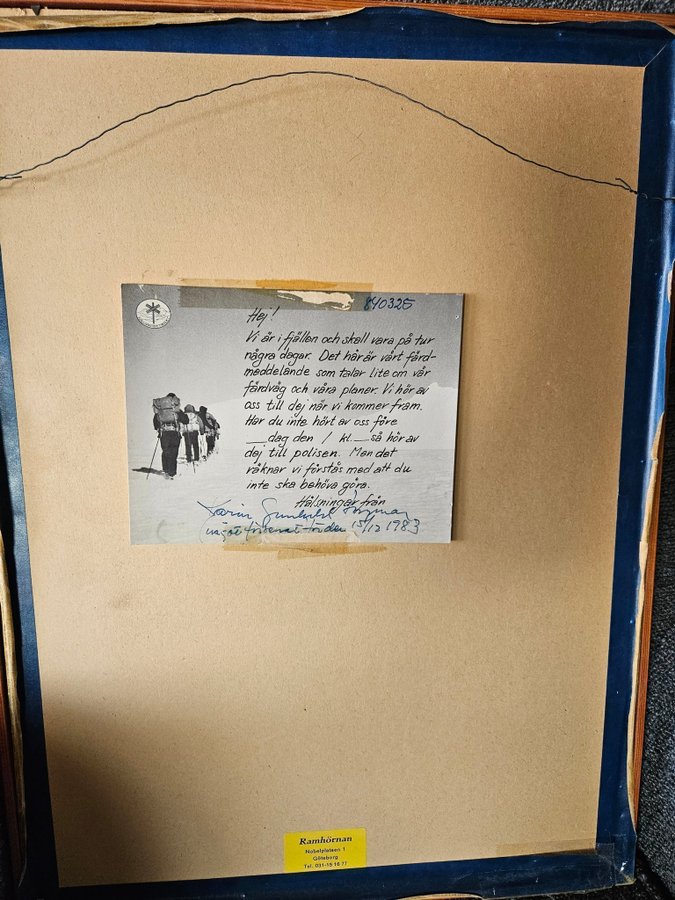 840325
Hej!
Vi är i fjällen och skall vara på tur
några dagar. Det här är vårt färd-
meddelande som talar lite om vår
färdväg och våra planer. Vi hör av
oss till dej när vi kommer fram.
Har du inte hört av oss före
__dag den / kl.__så hör av
dej till polisen. Men det
räknar vi förstås med att du
inte ska behöva göra.
Hälsningar från
15/12 1983
Ramhörnan
Nobelplatsen 1
Göteborg
Tel. 031-19 16 77